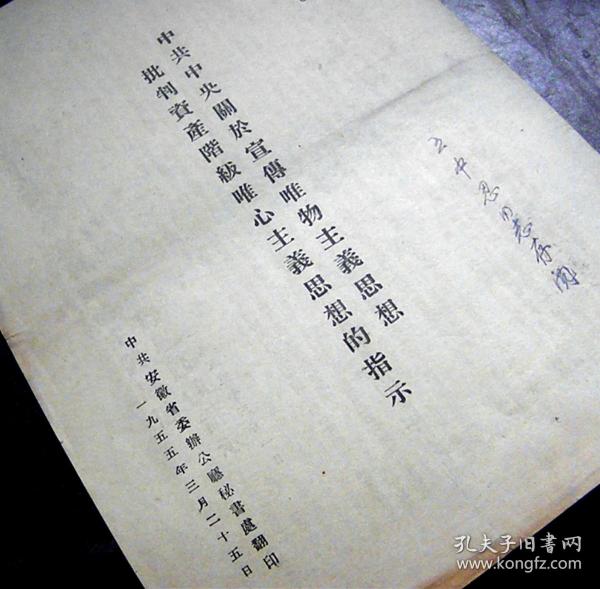 同志存閱
中共中央關於宣傳唯物主義思想
批判資產階級唯心主義思想的指示
中共安徽省委辦公廳秘書處翻印
一九五五年三月二十五日
孔夫子旧書网
www.kongfz.com